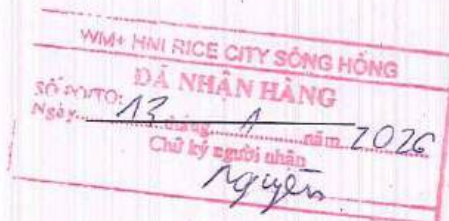 WM+ HNI RICE CITY SÔNG HỒNG
ĐÃ NHẬN HÀNG
SỐ PO/TO:
Ngày 13 tháng 1 năm 2026
Chữ ký người nhận
Nguyên